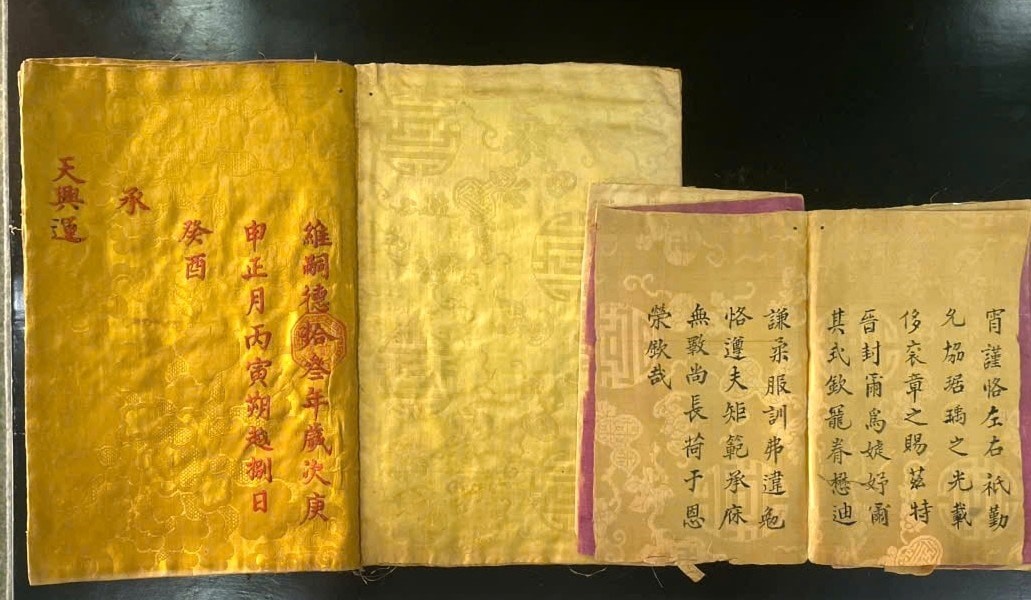 宵謹恪左右祇勤
允協琚瑀之光載
侈衮章之賜茲特
晉封爾爲婕妤爾
其式欽寵眷懋迪
謙柔服訓弗違勉
恪遵夫矩範承庥
無斁尚長荷于恩
榮欽哉
維嗣德拾叄年歲次庚
申正月丙寅朔越捌日
癸酉
承
天興運